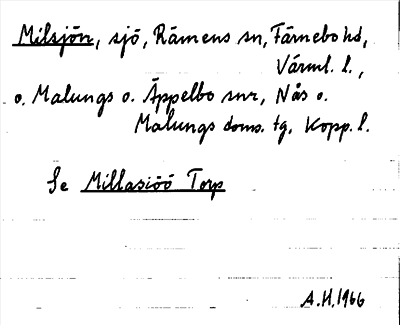 Milsjön, sjö, Rämens sn, Färnebo hd,
Värml. l.,
o. Malungs o. Äppelbo snr, Nås o.
Malungs doms. tg, Kopp. l.
Se Millasiöö Torp
A.H. 1966